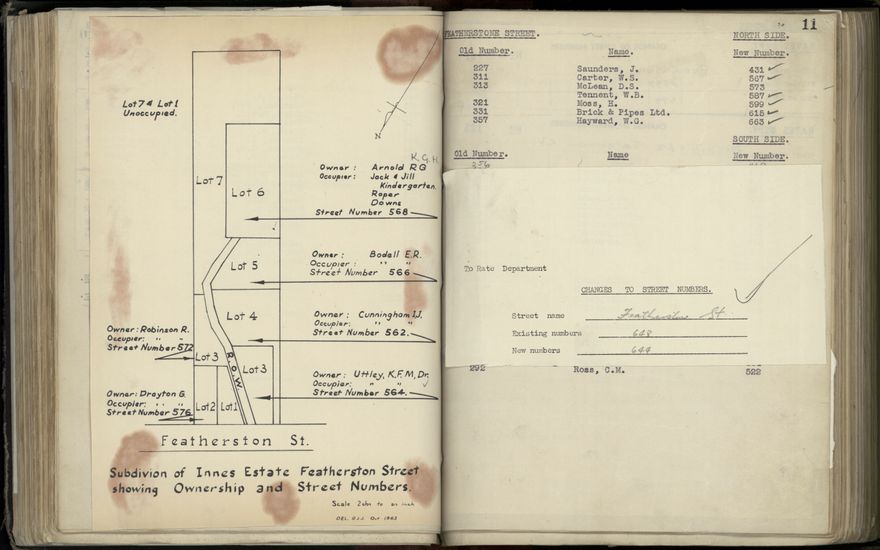 Lot 7 & Lot 1
Unoccupied.
N
Lot 7
Lot 6
Lot 5
Lot 4
Lot 3
Lot 3
R.O.W.
Lot 2
Lot 1
K.G.H.
Owner : Arnold R G
Occupier : Jack & Jill
Kindergarten.
Roper
Downs
Street Number 568
Owner : Bodall E.R.
Occupier : " "
Street Number 566
Owner : Cunningham I.J.
Occupier : " "
Street Number 562.
Owner : Uttley, K.F.M, Dr.
Occupier: " "
Street Number 564.
Owner : Robinson R.
Occupier: " "
Street Number 572
Owner : Drayton G.
Occupier: " "
Street Number 576.
Featherston St.
Subdivion of Innes Estate Featherston Street
showing Ownership and Street Numbers.
Scale 2chn to an inch
DEL. Oct 1963
11
FEATHERSTONE STREET. NORTH SIDE.
Old Number. Name. New Number.
227 Saunders, J. 431
311 Carter, W.S. 567
313 McLean, D.S. 573
Tennent, W.B. 587
321 Moss, H. 599
331 Brick & Pipes Ltd. 615
357 Hayward, W.G. 663
SOUTH SIDE.
Old Number. Name New Number.
256
To Rate Department
CHANGES TO STREET NUMBERS.
Street name Featherston St
Existing numbers 648
New numbers 644
292 Ross, C.M. 522